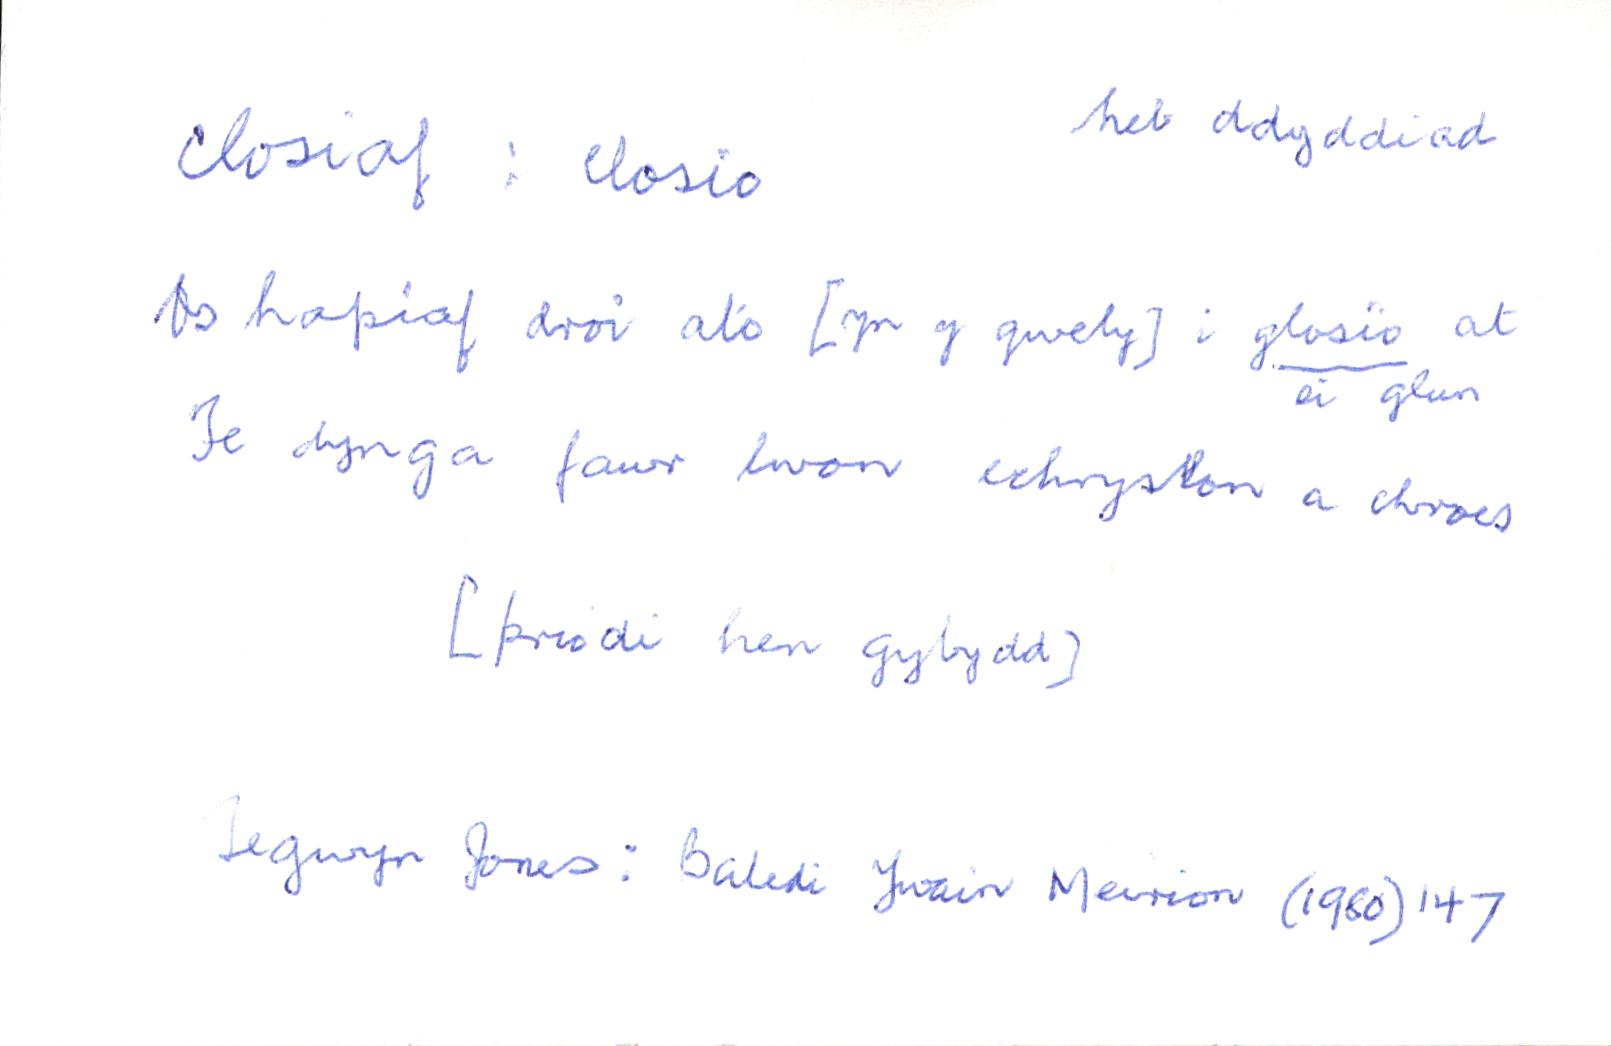 closiaf : closio
heb ddyddiad
Os hapiaf droi ato [yn y gwely] i glosio at
ei glun
Fe dynga fawr lwon echryslon a chroes
[priodi hen gybydd]
Tegwyn Jones: Baledi Ywain Meirion (1980) 147